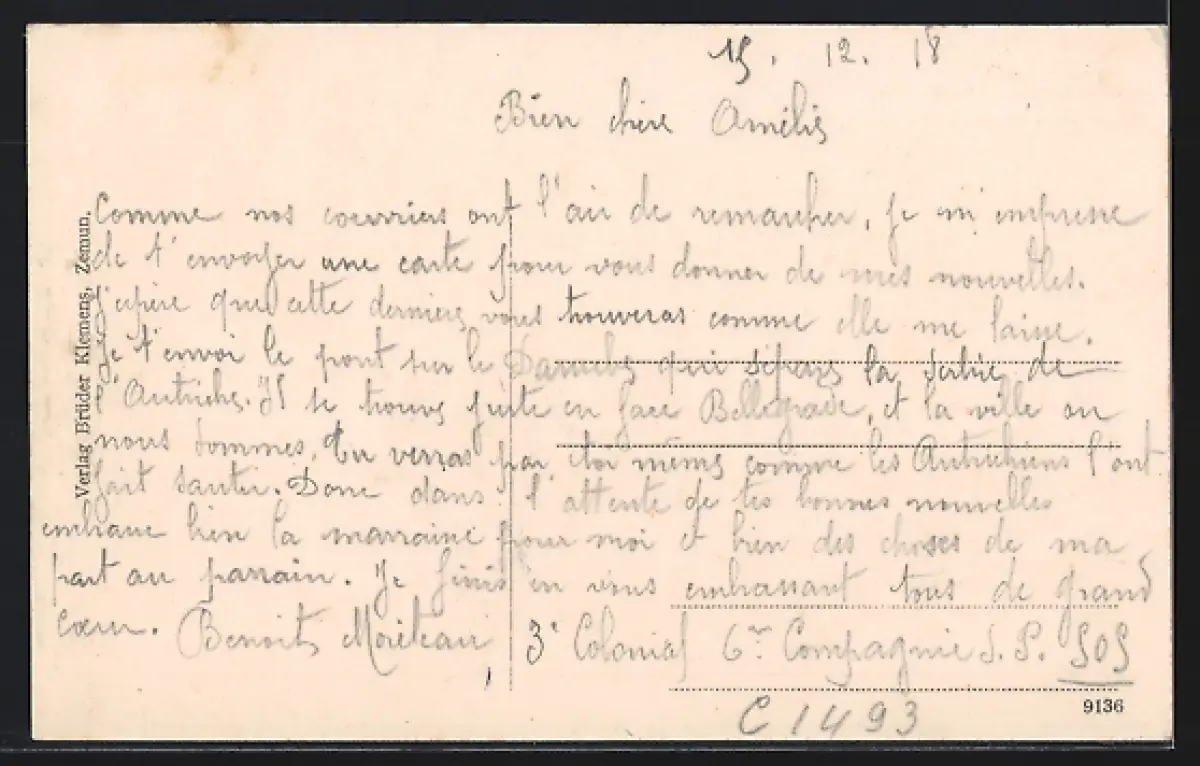 15. 12. 18
Bien chère Amélie
Comme nos courriers ont l'air de remarcher, je m'empresse
de t'envoyer une carte pour vous donner de mes nouvelles.
J'espère que cette dernière vous trouveras comme elle me laisse.
Je t'envoi le pont sur le Danube qui sépare la Serbie de
l'Autriche. Il se trouve juste en face Bellegrade, et la ville ou
nous sommes. Tu verras par toi même comme les Autrichiens l'ont
fait sauter. Donc dans l'attente de tes bonnes nouvelles
embrasse bien la marraine pour moi et bien des choses de ma
part au parrain. Je finis en vous embrassant tous de grand
Cœur. Benoit 3e Colonial 6me Compagnie S. P. 505
C 1493
9136
Verlag Brüder Klemens, Zemun.